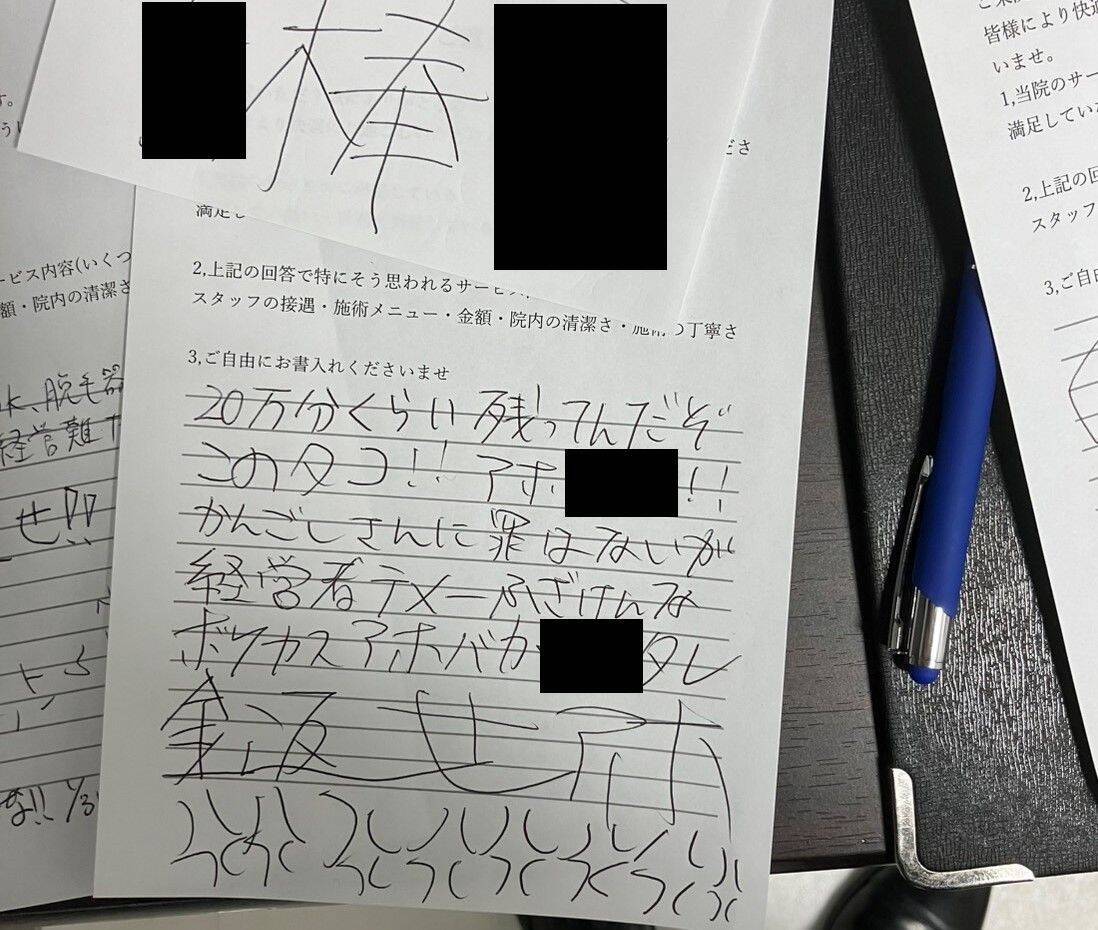 棒
満足し
2,上記の回答で特にそう思われるサービス
スタッフの接遇・施術メニュー・金額・院内の清潔さ・施術の丁寧さ
3,ご自由にお書入れくださいませ
20万分くらい残ってんだぞ
このタコ!! アホ !!
かんごしさんに罪はないが
経営者テメーふざけんな
ボケカスアホバカ タレ
金返せ
ださ
す。
ービス内容(いくつ
額・院内の清潔さ
脱毛器
経営難
せ!!
な!!
皆様により快適
いませ。
1,当院のサー
満足してい
2,上記の回
スタッフ
3,ご自由